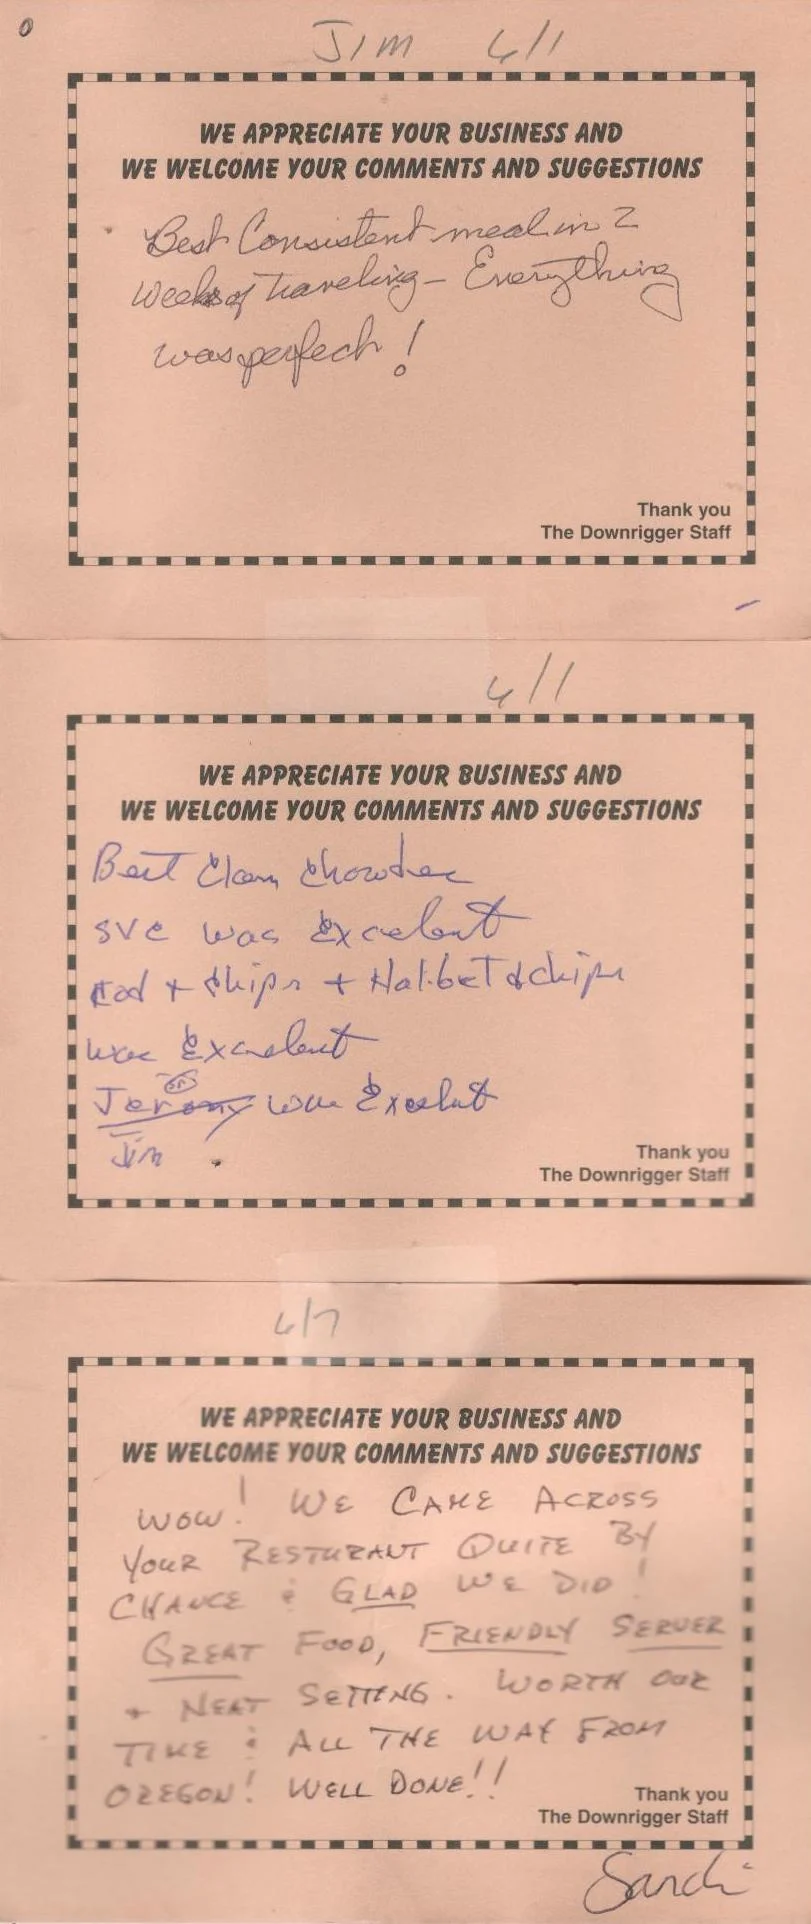 0
JIM 6/1
WE APPRECIATE YOUR BUSINESS AND
WE WELCOME YOUR COMMENTS AND SUGGESTIONS
Best Consistent meal in 2
weeks of traveling – Everything
was perfect!
Thank you
The Downrigger Staff
6/1
WE APPRECIATE YOUR BUSINESS AND
WE WELCOME YOUR COMMENTS AND SUGGESTIONS
Best Clam Chowder
SVC was Excelent
Cod + Chips + Halibet & chips
was Excelent
Jeromy was Excelent
Jim
Thank you
The Downrigger Staff
6/7
WE APPRECIATE YOUR BUSINESS AND
WE WELCOME YOUR COMMENTS AND SUGGESTIONS
WOW! WE CAME ACROSS
YOUR RESTURANT QUITE BY
CHANCE & GLAD WE DID!
GREAT FOOD, FRIENDLY SERVER
+ NEAT SETTING. WORTH OUR
TIME & ALL THE WAY FROM
OREGON! WELL DONE!!
Thank you
The Downrigger Staff
Sandi